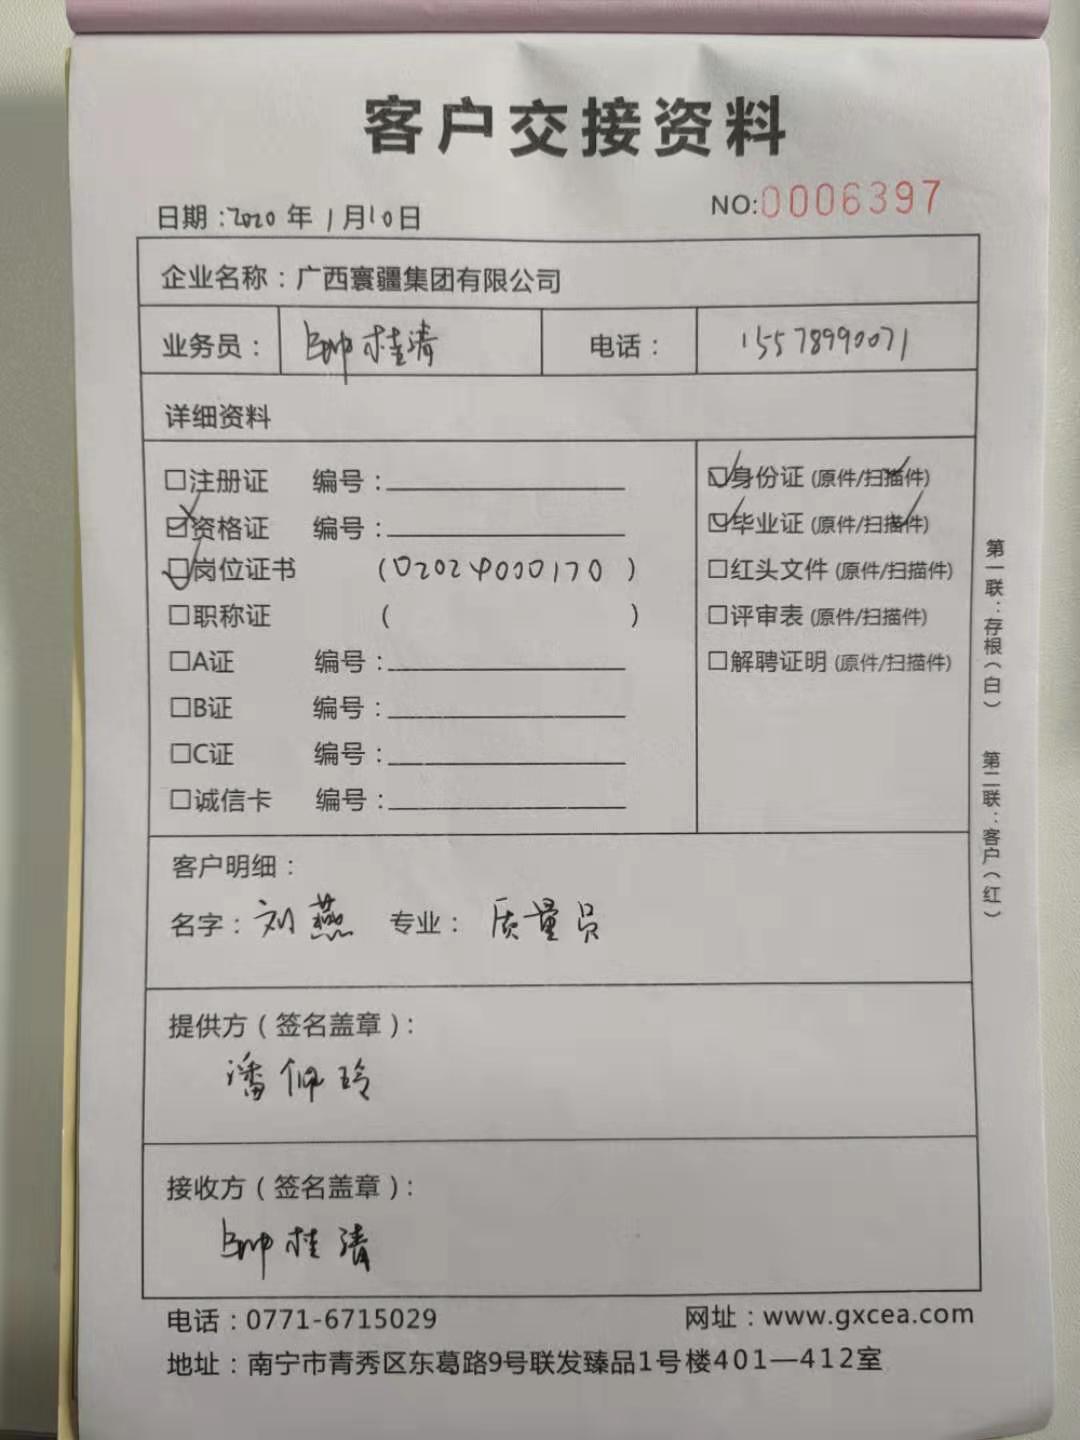 客户交接资料
日期:2020年1月10日 NO:0006397
企业名称:广西寰疆集团有限公司
业务员: 帅桂清 电话: 15578990071
详细资料
□注册证 编号:
☑资格证 编号:
☑岗位证书 (02024000170)
□职称证 ( )
□A证 编号:
□B证 编号:
□C证 编号:
□诚信卡 编号:
☑身份证(原件/扫描件)
☑毕业证(原件/扫描件)
□红头文件(原件/扫描件)
□评审表(原件/扫描件)
□解聘证明(原件/扫描件)
第一联:存根(白) 第二联:客户(红)
客户明细:
名字:刘燕 专业:质量员
提供方(签名盖章):
潘佩玲
接收方(签名盖章):
帅桂清
电话:0771-6715029 网址:www.gxcea.com
地址:南宁市青秀区东葛路9号联发臻品1号楼401—412室